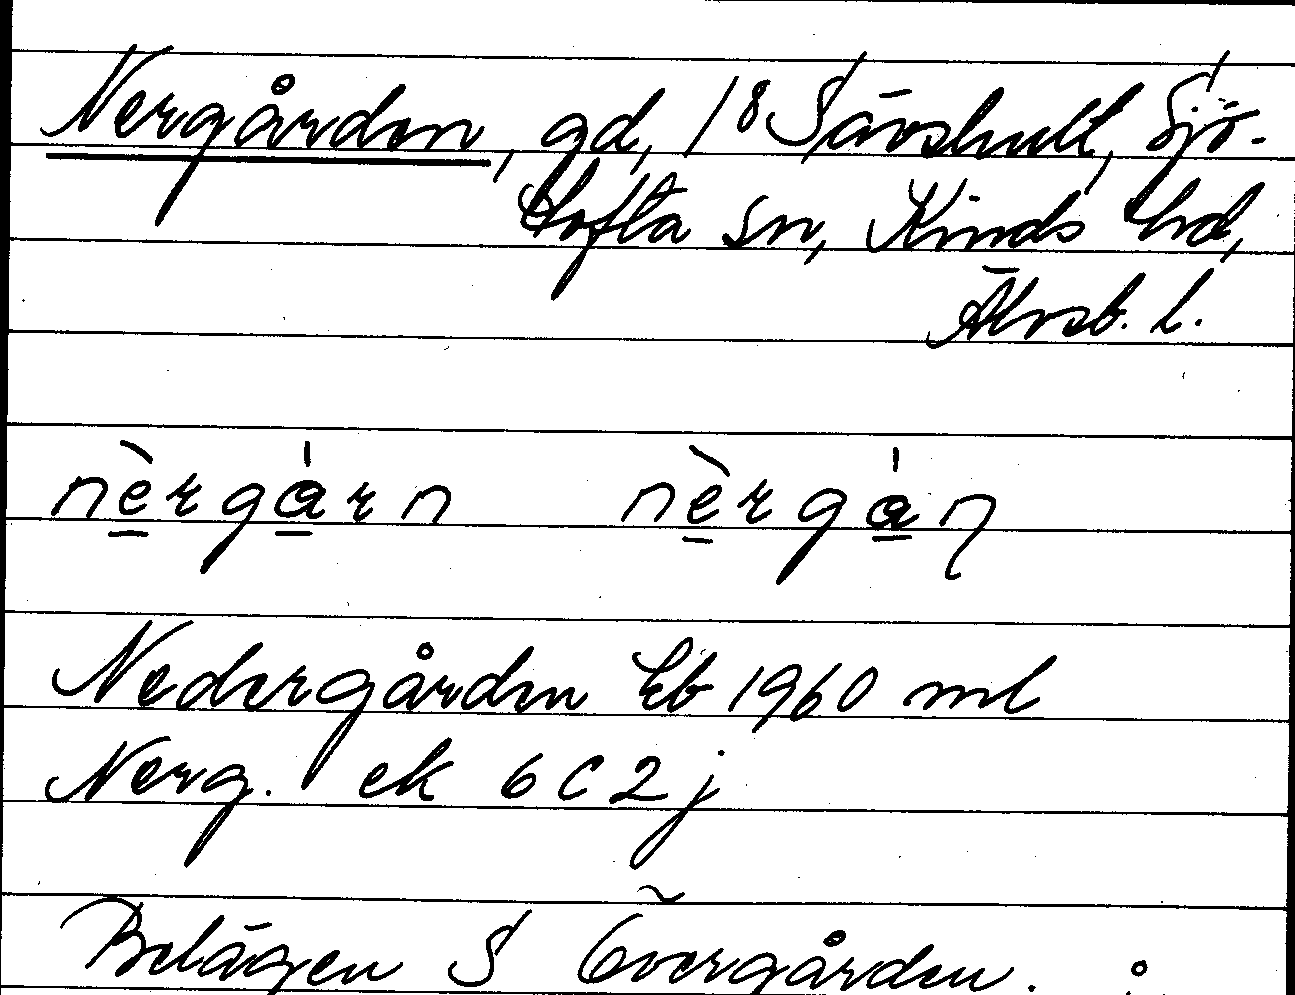 Nergården, gd, 1⁸ Sävshult, Sjö-
tofta sn, Kinds hd,
Älvsb. l.
nèrgárn nèrgáɳ
Nedergården Eb 1960 ml
Nerg. ek 6 C 2 j
Belägen S Övergården.